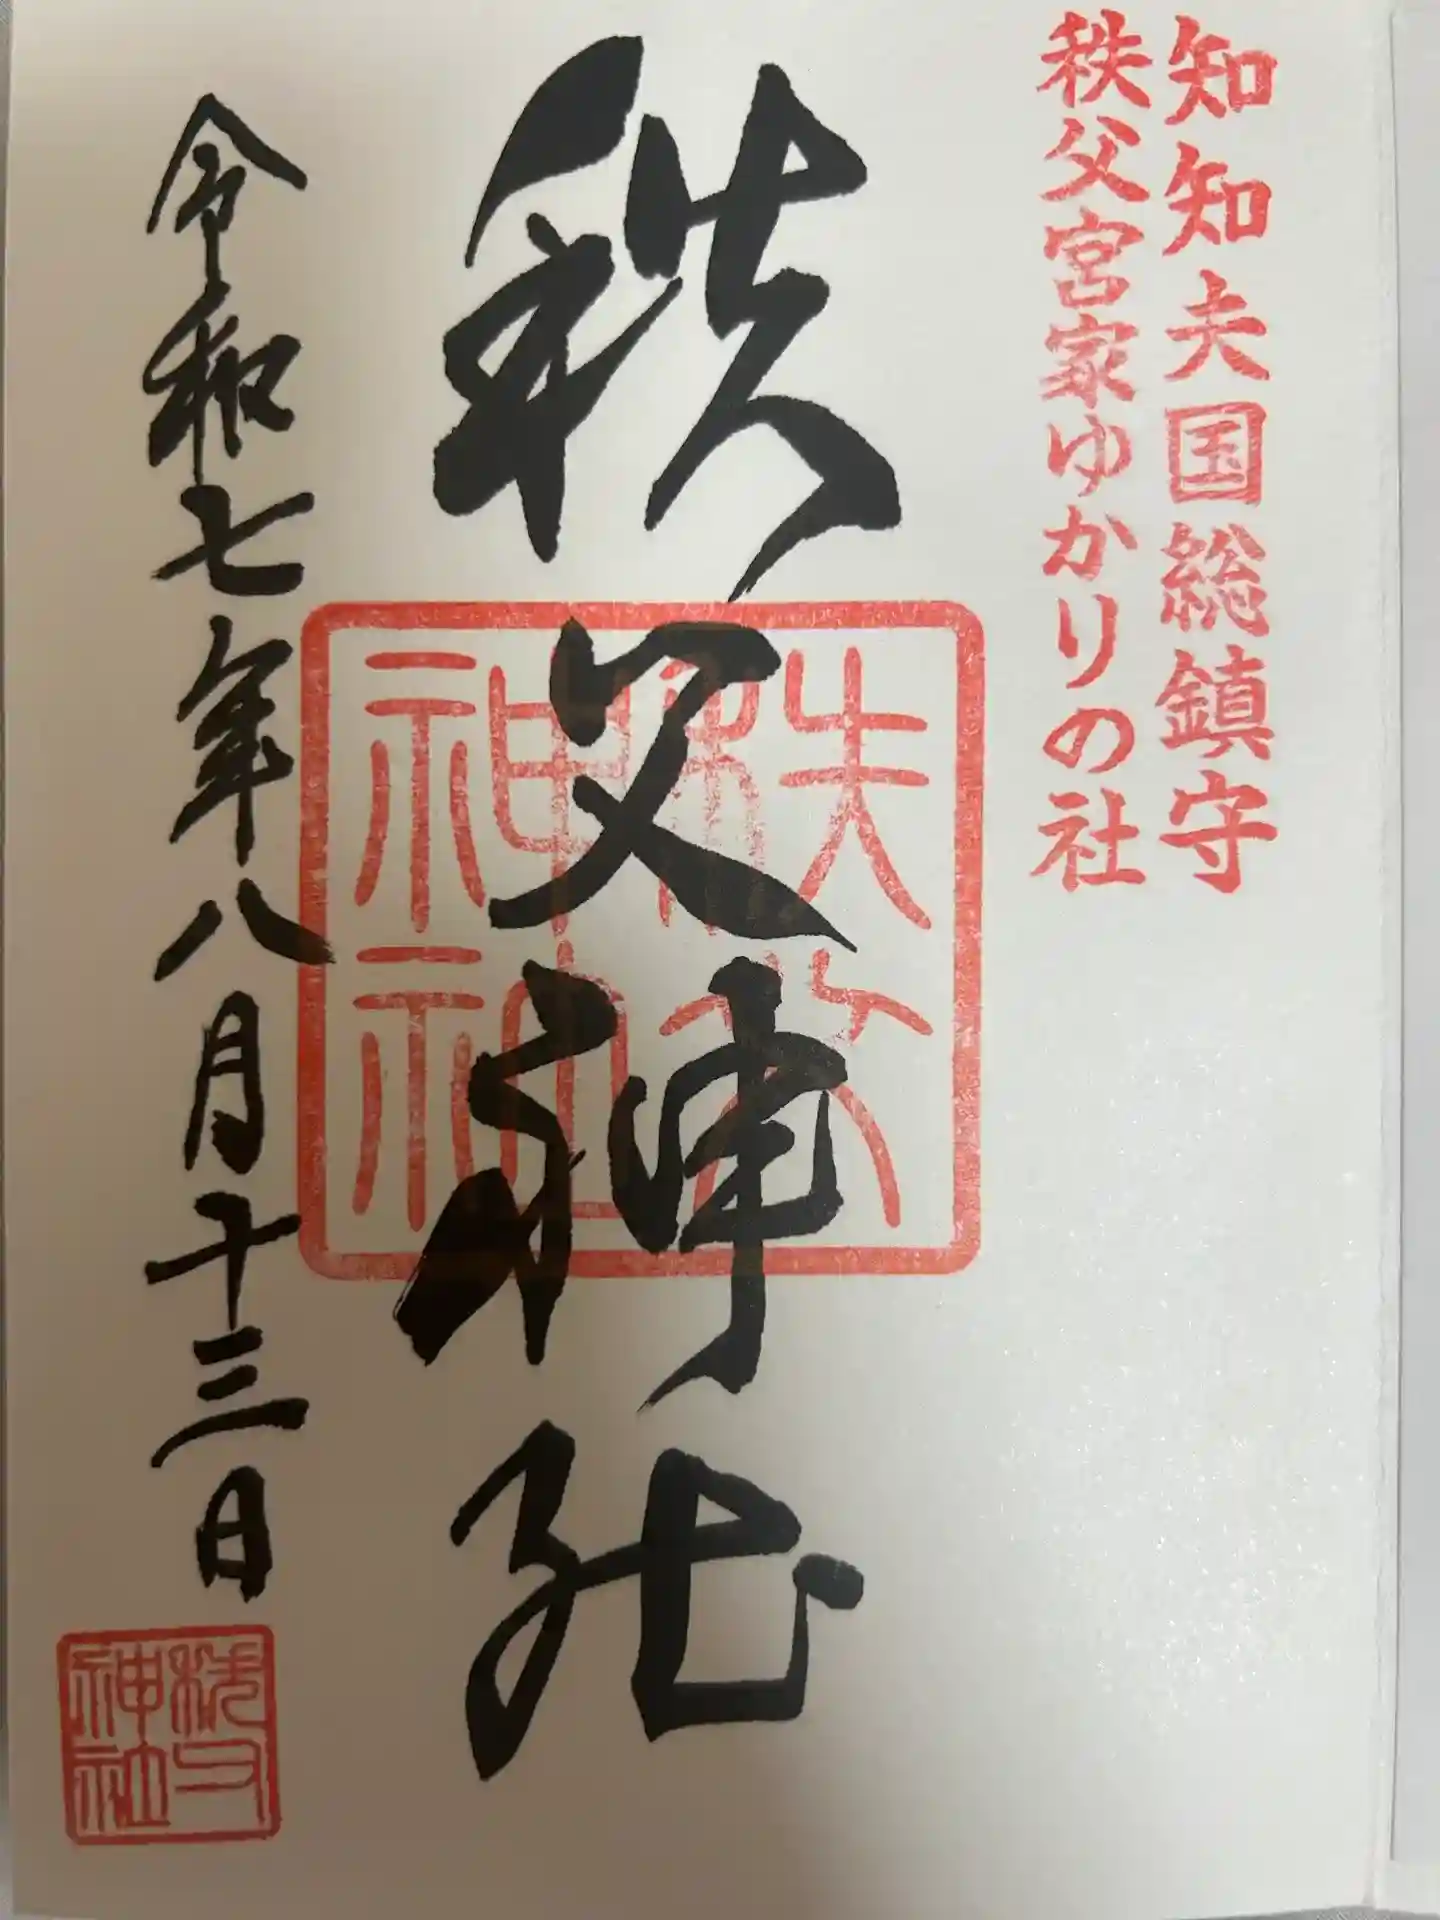 知知夫国総鎮守
秩父宮家ゆかりの社
秩父神社
秩父
神社
令和七年八月十三日
秩父
神社